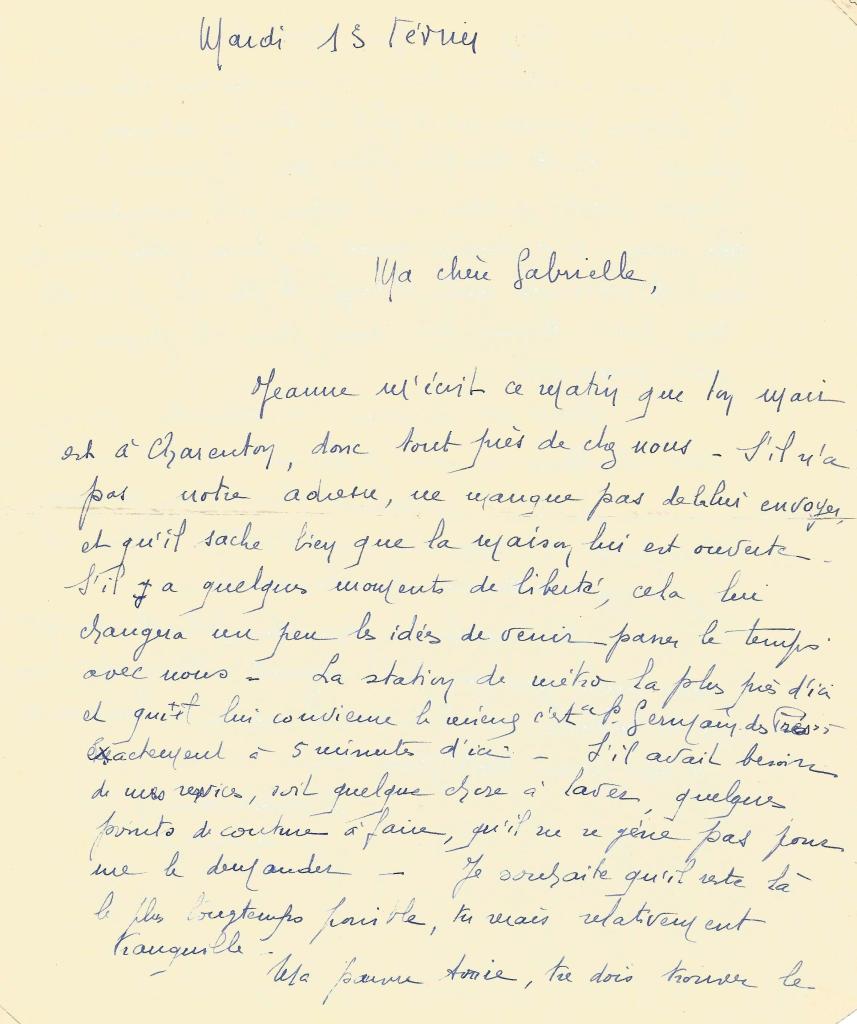 Mardi 13 Février
Ma chère Gabrielle,
Jeanne m'écrit ce matin que ton mari
est à Charenton, donc tout près de chez nous - S'il n'a
pas notre adresse, ne manque pas de la lui envoyer,
et qu'il sache bien que la maison lui est ouverte -
S'il y a quelques moments de liberté, cela lui
changera un peu les idées de venir passer le temps
avec nous - La station de métro la plus près d'ici
et qui lui convienne le mieux c'est St Germain des Prés
Exactement à 5 minutes d'ici - S'il avait besoin
de mes services, soit quelque chose à laver, quelques
points de couture à faire, qu'il ne se gêne pas pour
me le demander - Je souhaite qu'il reste là
le plus longtemps possible, tu serais relativement
tranquille -
Ma pauvre Amie, tu dois trouver le